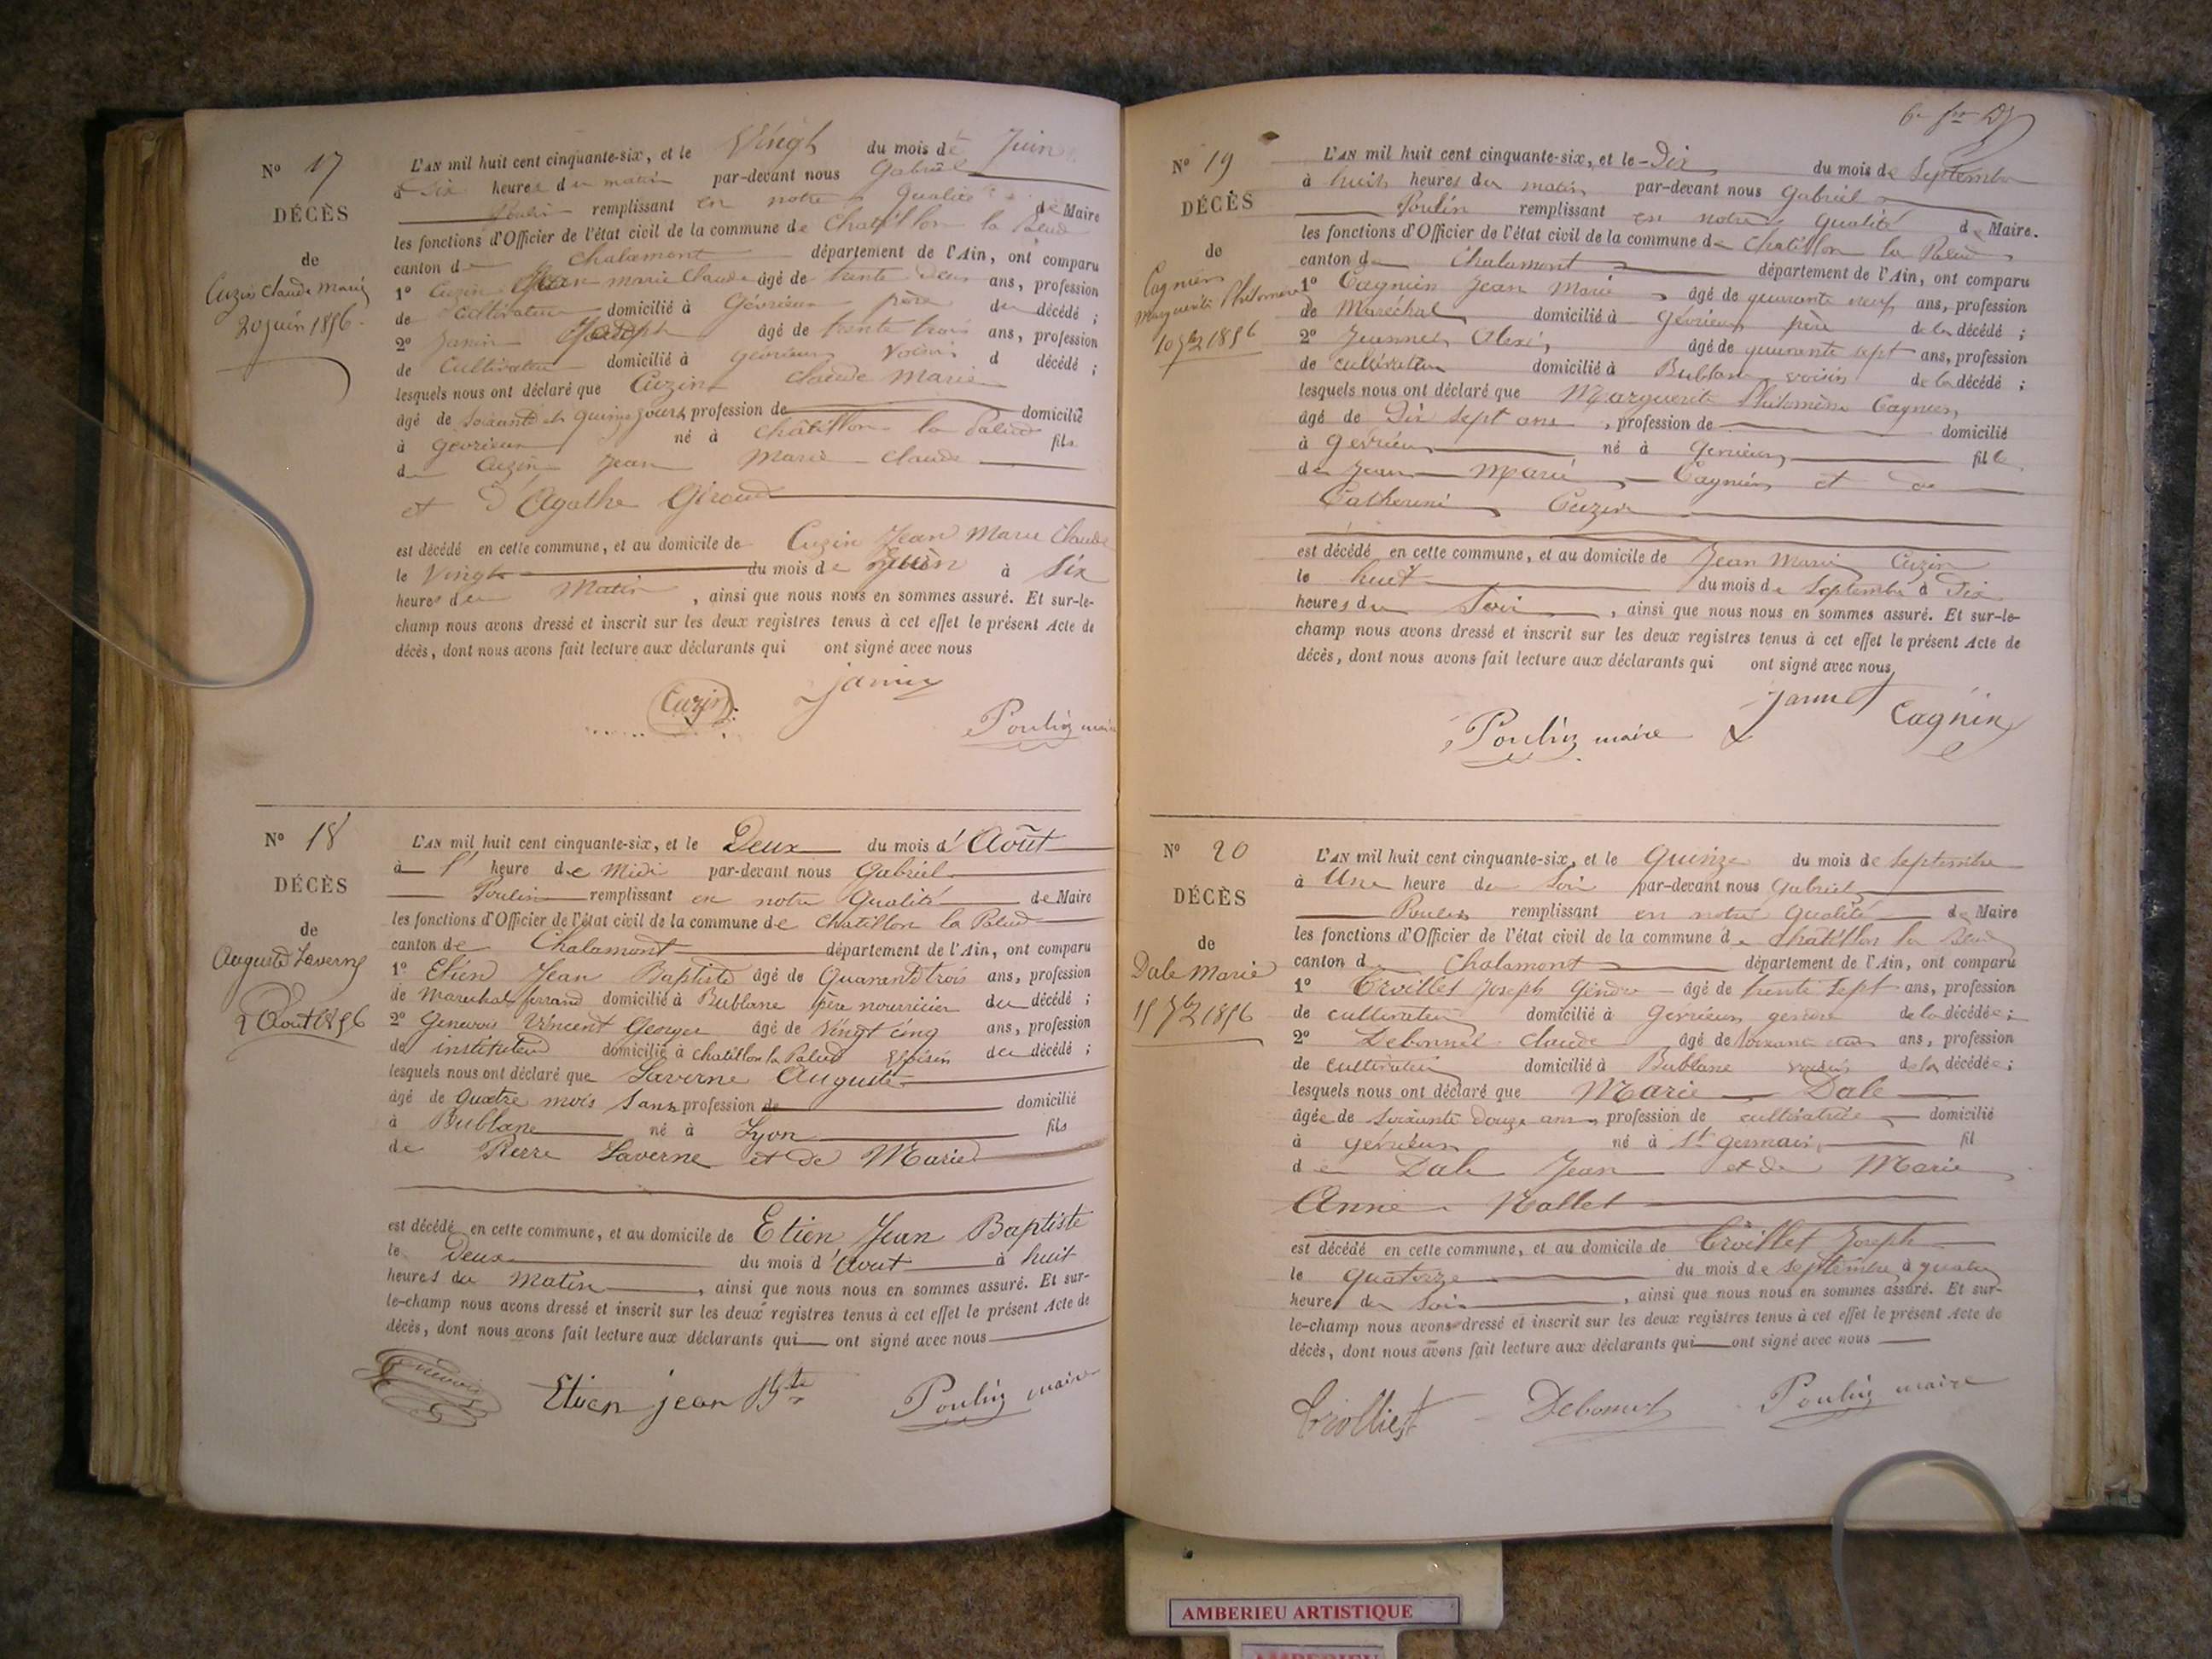 N° 17
DÉCÈS
de
Cuzin Claude Marie
20 juin 1856
L'AN mil huit cent cinquante-six, et le Vingt du mois de Juin
à Six heures du matin par-devant nous Gabriel
Poulin remplissant en notre Qualité de Maire
les fonctions d'Officier de l'état civil de la commune de Chatillon la Palud
canton de Chalamont département de l'Ain, ont comparu
1° Cuzin Jean marie Claude âgé de trente deux ans, profession
de Cultivateur domicilié à Gévrieux père du décédé ;
2° Janin Joseph âgé de trente trois ans, profession
de Cultivateur domicilié à gévrieux voisin d décédé ;
lesquels nous ont déclaré que Cuzin Claude Marie
âgé de Soixante et quinze jours, profession de domicilié
à gevrieux né à Châtillon la Palud fils
de Cuzin Jean Marie Claude
et d'Agathe Giroud
est décédé en cette commune, et au domicile de Cuzin Jean Marie Claude
le Vingt du mois de Juin à Six
heures du Matin, ainsi que nous nous en sommes assuré. Et sur-le-
champ nous avons dressé et inscrit sur les deux registres tenus à cet effet le présent Acte de
décès, dont nous avons fait lecture aux déclarants qui ont signé avec nous
Cuzin Janin
Poulin maire
N° 18
DÉCÈS
de
Auguste Laverne
2 Aout 1856
L'AN mil huit cent cinquante-six, et le Deux du mois d'Août
à l' heure de Midi par-devant nous Gabriel
Poulin remplissant en notre Qualité de Maire
les fonctions d'Officier de l'état civil de la commune de Chatillon la Palud
canton de Chalamont département de l'Ain, ont comparu
1° Etien Jean Baptiste âgé de Quarante trois ans, profession
de Marechal ferrand domicilié à Bublane père nourricier du décédé ;
2° Genevois Vincent Georges âgé de Vingt cinq ans, profession
de instituteur domicilié à chatillon la Palud Voisin du décédé ;
lesquels nous ont déclaré que Laverne Auguste
âgé de Quatre mois Sans profession de domicilié
à Bublane né à Lyon fils
de Pierre Laverne et de Marie
est décédé en cette commune, et au domicile de Etien Jean Baptiste
le Deux du mois d'Aout à huit
heures du Matin, ainsi que nous nous en sommes assuré. Et sur-
le-champ nous avons dressé et inscrit sur les deux registres tenus à cet effet le présent Acte de
décès, dont nous avons fait lecture aux déclarants qui ont signé avec nous
Genevois Etien jean Bte Poulin maire
N° 19
DÉCÈS
de
Cagnin
Marguerite Philomène
10 7bre 1856
L'AN mil huit cent cinquante-six, et le Dix du mois de Septembre
à huit heures du matin par-devant nous Gabriel
Poulin remplissant en notre Qualité de Maire.
les fonctions d'Officier de l'état civil de la commune de Chatillon la Palud
canton de Chalamont département de l'Ain, ont comparu
1° Cagnin Jean Marie âgé de quarante neuf ans, profession
de Maréchal domicilié à Gévrieux père de la décédé ;
2° Jeannet Alexis âgé de quarante sept ans, profession
de cultivateur domicilié à Bublane voisin de la décédé ;
lesquels nous ont déclaré que Marguerite Philomène Cagnin
âgé de Dix sept ans, profession de domicilié
à gevrieux né à Gevrieux fille
de Jean Marie Cagnin et de
Catherine Cuzin
est décédé en cette commune, et au domicile de Jean Marie Cuzin
le huit du mois de Septembre à Dix
heures du Soir, ainsi que nous nous en sommes assuré. Et sur-le-
champ nous avons dressé et inscrit sur les deux registres tenus à cet effet le présent Acte de
décès, dont nous avons fait lecture aux déclarants qui ont signé avec nous
Poulin maire Jannet Cagnin
N° 20
DÉCÈS
de
Dale Marie
15 7bre 1856
L'AN mil huit cent cinquante-six, et le Quinze du mois de Septembre
à Une heure du Soir par-devant nous Gabriel
Poulin remplissant en notre Qualité de Maire
les fonctions d'Officier de l'état civil de la commune de Chatillon la Palud
canton de Chalamont département de l'Ain, ont comparu
1° Trolliet Joseph Gendre âgé de trente Sept ans, profession
de cultivateur domicilié à Gévrieux gendre de la décédée ;
2° Debonnet Claude âgé de Soixante ans, profession
de cultivateur domicilié à Bublane voisin de la décédée ;
lesquels nous ont déclaré que Marie Dale
âgée de Soixante douze ans, profession de cultivatrice domicilié
à gevrieux né à St germain fil
de Dale Jean et de Marie
Anne Nallet
est décédé en cette commune, et au domicile de Trolliet Joseph
le quatorze du mois de Septembre à quatre
heures du Soir, ainsi que nous nous en sommes assuré. Et sur-
le-champ nous avons dressé et inscrit sur les deux registres tenus à cet effet le présent Acte de
décès, dont nous avons fait lecture aux déclarants qui ont signé avec nous
Trolliet Debonnet Poulin maire
AMBERIEU ARTISTIQUE
AMBERIEU